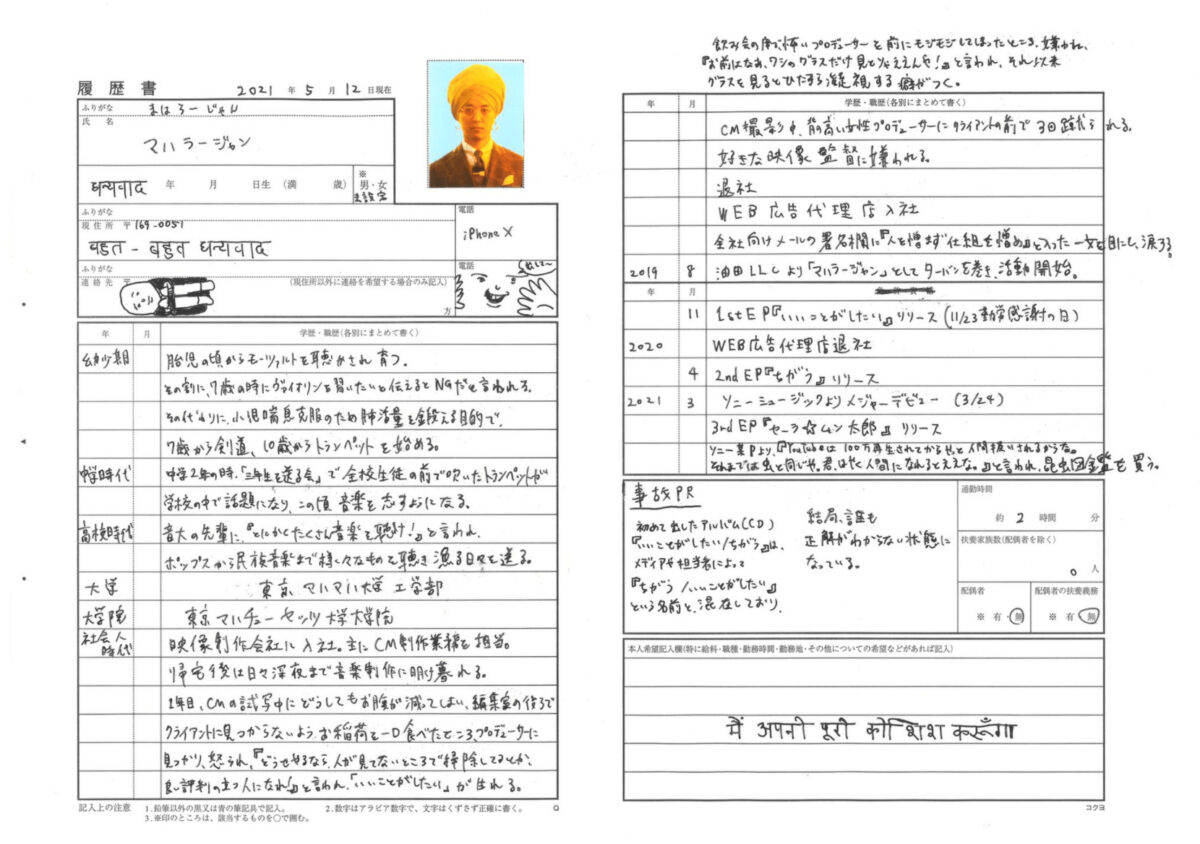 履歴書
2021年5月12日現在
ふりがな まはらーじゃん
氏名
マハラージャン
धन्यवाद 年 月 日生 (満 歳)
※
男・女
未設定
ふりがな
現住所 〒169-0051
बहुत - बहुत धन्यवाद
電話
iPhone X
ふりがな
連絡先 〒
(現住所以外に連絡を希望する場合のみ記入)
方
電話
年 月 学歴・職歴(各別にまとめて書く)
幼少期 胎児の頃からモーツァルトを聴かされ育つ。
その割に、7歳の時にヴァイオリンを習いたいと伝えるとNGだと言われる。
その代わりに、小児喘息克服のため肺活量を鍛える目的で、
7歳から剣道、10歳からトランペットを始める。
中学時代 中学2年の時、「三年生を送る会」で全校生徒の前で吹いたトランペットが
学校の中で話題になり、この頃音楽を志すようになる。
高校時代 音大の先輩に、『とにかくたくさん音楽を聴け!』と言われ、
ポップスから民族音楽まで様々なものを聴き漁る日々を送る。
大学 東京マハマハ大学 工学部
大学院 東京マハチューセッツ大学大学院
社会人時代 映像制作会社に入社。主にCM制作業務を担当。
帰宅後は日々深夜まで音楽制作に明け暮れる。
1年目、CMの試写中にどうしてもお腹が減ってしまい、編集室の後ろで
クライアントに見つからないよう、お稲荷を一口食べたところ、プロデューサーに
見つかり、怒られ、『どうせやるなら、人が見てないところで掃除してるとか、
良い評判の立つ人になれ!』と言われ、「いいことがしたい」が生れる。
記入上の注意 1.鉛筆以外の黒又は青の筆記具で記入。 2.数字はアラビア数字で、文字はくずさず正確に書く。
3.※印のところは、該当するものを○で囲む。
飲み会の席で怖いプロデューサーを前にモジモジしてしまったところ、嫌われ、
『お前はなあ、ワシのグラスだけ見とったらええんや!』と言われ、それ以来
グラスを見るとひたすら凝視する癖がつく。
年 月 学歴・職歴(各別にまとめて書く)
CM撮影中、背の高い女性プロデューサーにクライアントの前で3回蹴られる。
好きな映像監督に嫌われる。
退社
WEB広告代理店入社
会社向けメールの署名欄に『人を憎まず仕組を憎め』と入った一文を目にし、涙する。
2019 8 油田LLCより「マハラージャン」としてターバンを巻き、活動開始。
年 月
11 1st EP『いいことがしたい』リリース (11/23勤労感謝の日)
2020 WEB広告代理店退社
4 2nd EP『ちがう』リリース
2021 3 ソニーミュージックよりメジャーデビュー (3/24)
3rd EP『セーラ☆ムン太郎』リリース
ソニー某Pより、『YouTubeは100万再生されてからやっと人間扱いされるからな。
それまでは虫と同じや。君ははやく人間になれるとええな。』と言われ、昆虫図鑑を買う。
事故PR
初めて出したアルバム(CD)
『いいことがしたい/ちがう』は、
メディアや担当者によって
『ちがう/いいことがしたい』
という名前と混在しており、
結局、誰も
正解がわからない状態に
なっている。
通勤時間
約 2 時間 分
扶養家族数(配偶者を除く)
0 人
配偶者
※ 有・無
配偶者の扶養義務
※ 有・無
本人希望記入欄(特に給料・職種・勤務時間・勤務地・その他についての希望などがあれば記入)
मैं अपनी पूरी कोशिश करूँगा
コクヨ